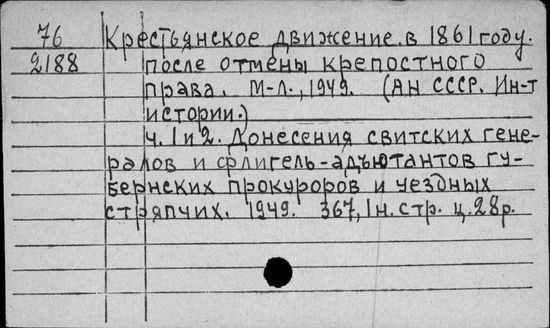 76 Крестьянское движение в 1861 году.
2188 после отмены крепостного
права. М-Л., 1949. (АН СССР. Ин-т
истории.)
ч. 1 и 2. Донесения свитских гене-
ралов и флигель-адъютантов гу-
бернских прокуроров и уездных
стряпчих. 1949. 367, 1н. стр. ц. 28р.